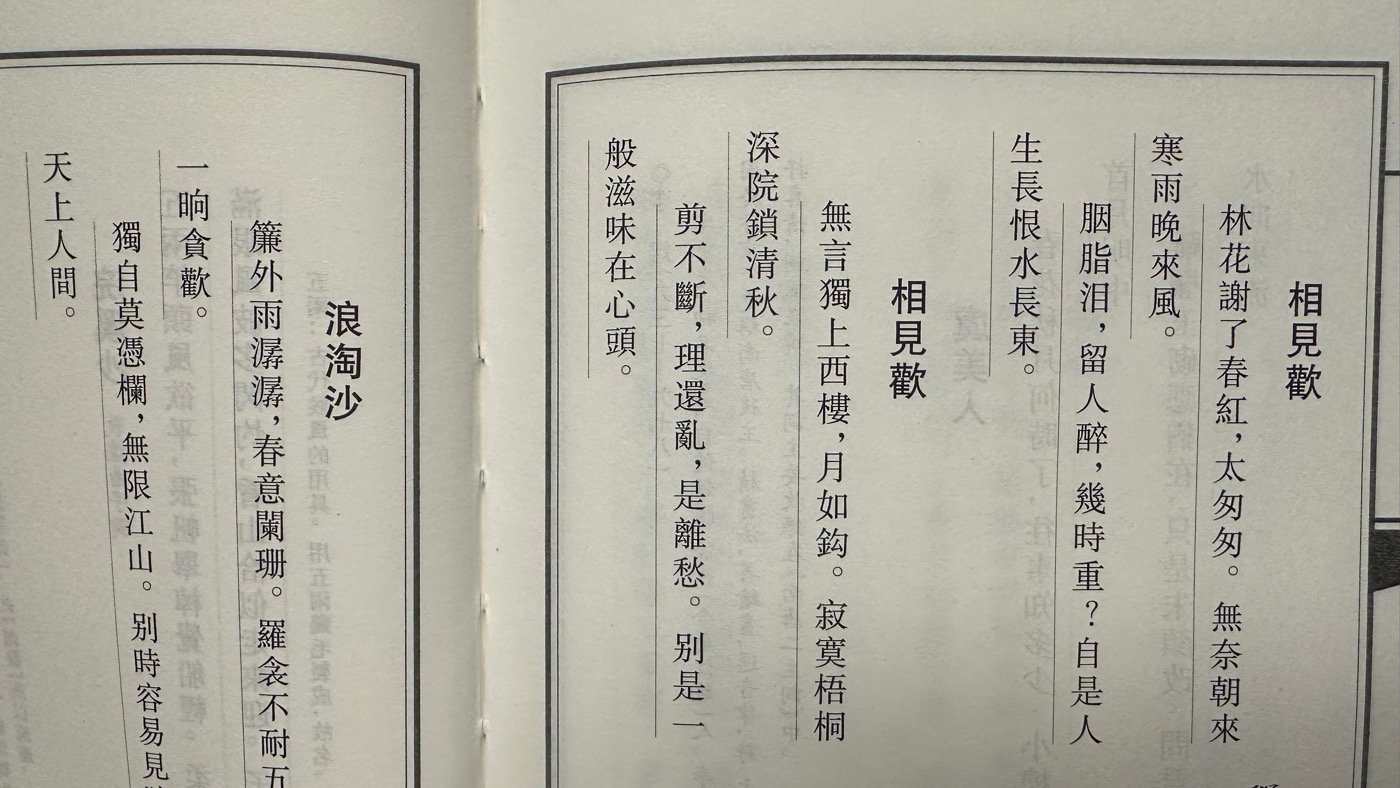 相見歡
林花謝了春紅，太匆匆。無奈朝來
寒雨晚來風。
胭脂泪，留人醉，幾時重？自是人
生長恨水長東。
相見歡
無言獨上西樓，月如鈎。寂寞梧桐
深院鎖清秋。
剪不斷，理還亂，是離愁。别是一
般滋味在心頭。
浪淘沙
簾外雨潺潺，春意闌珊。羅衾不耐五
一晌貪歡。
獨自莫憑欄，無限江山。别時容易見
天上人間。